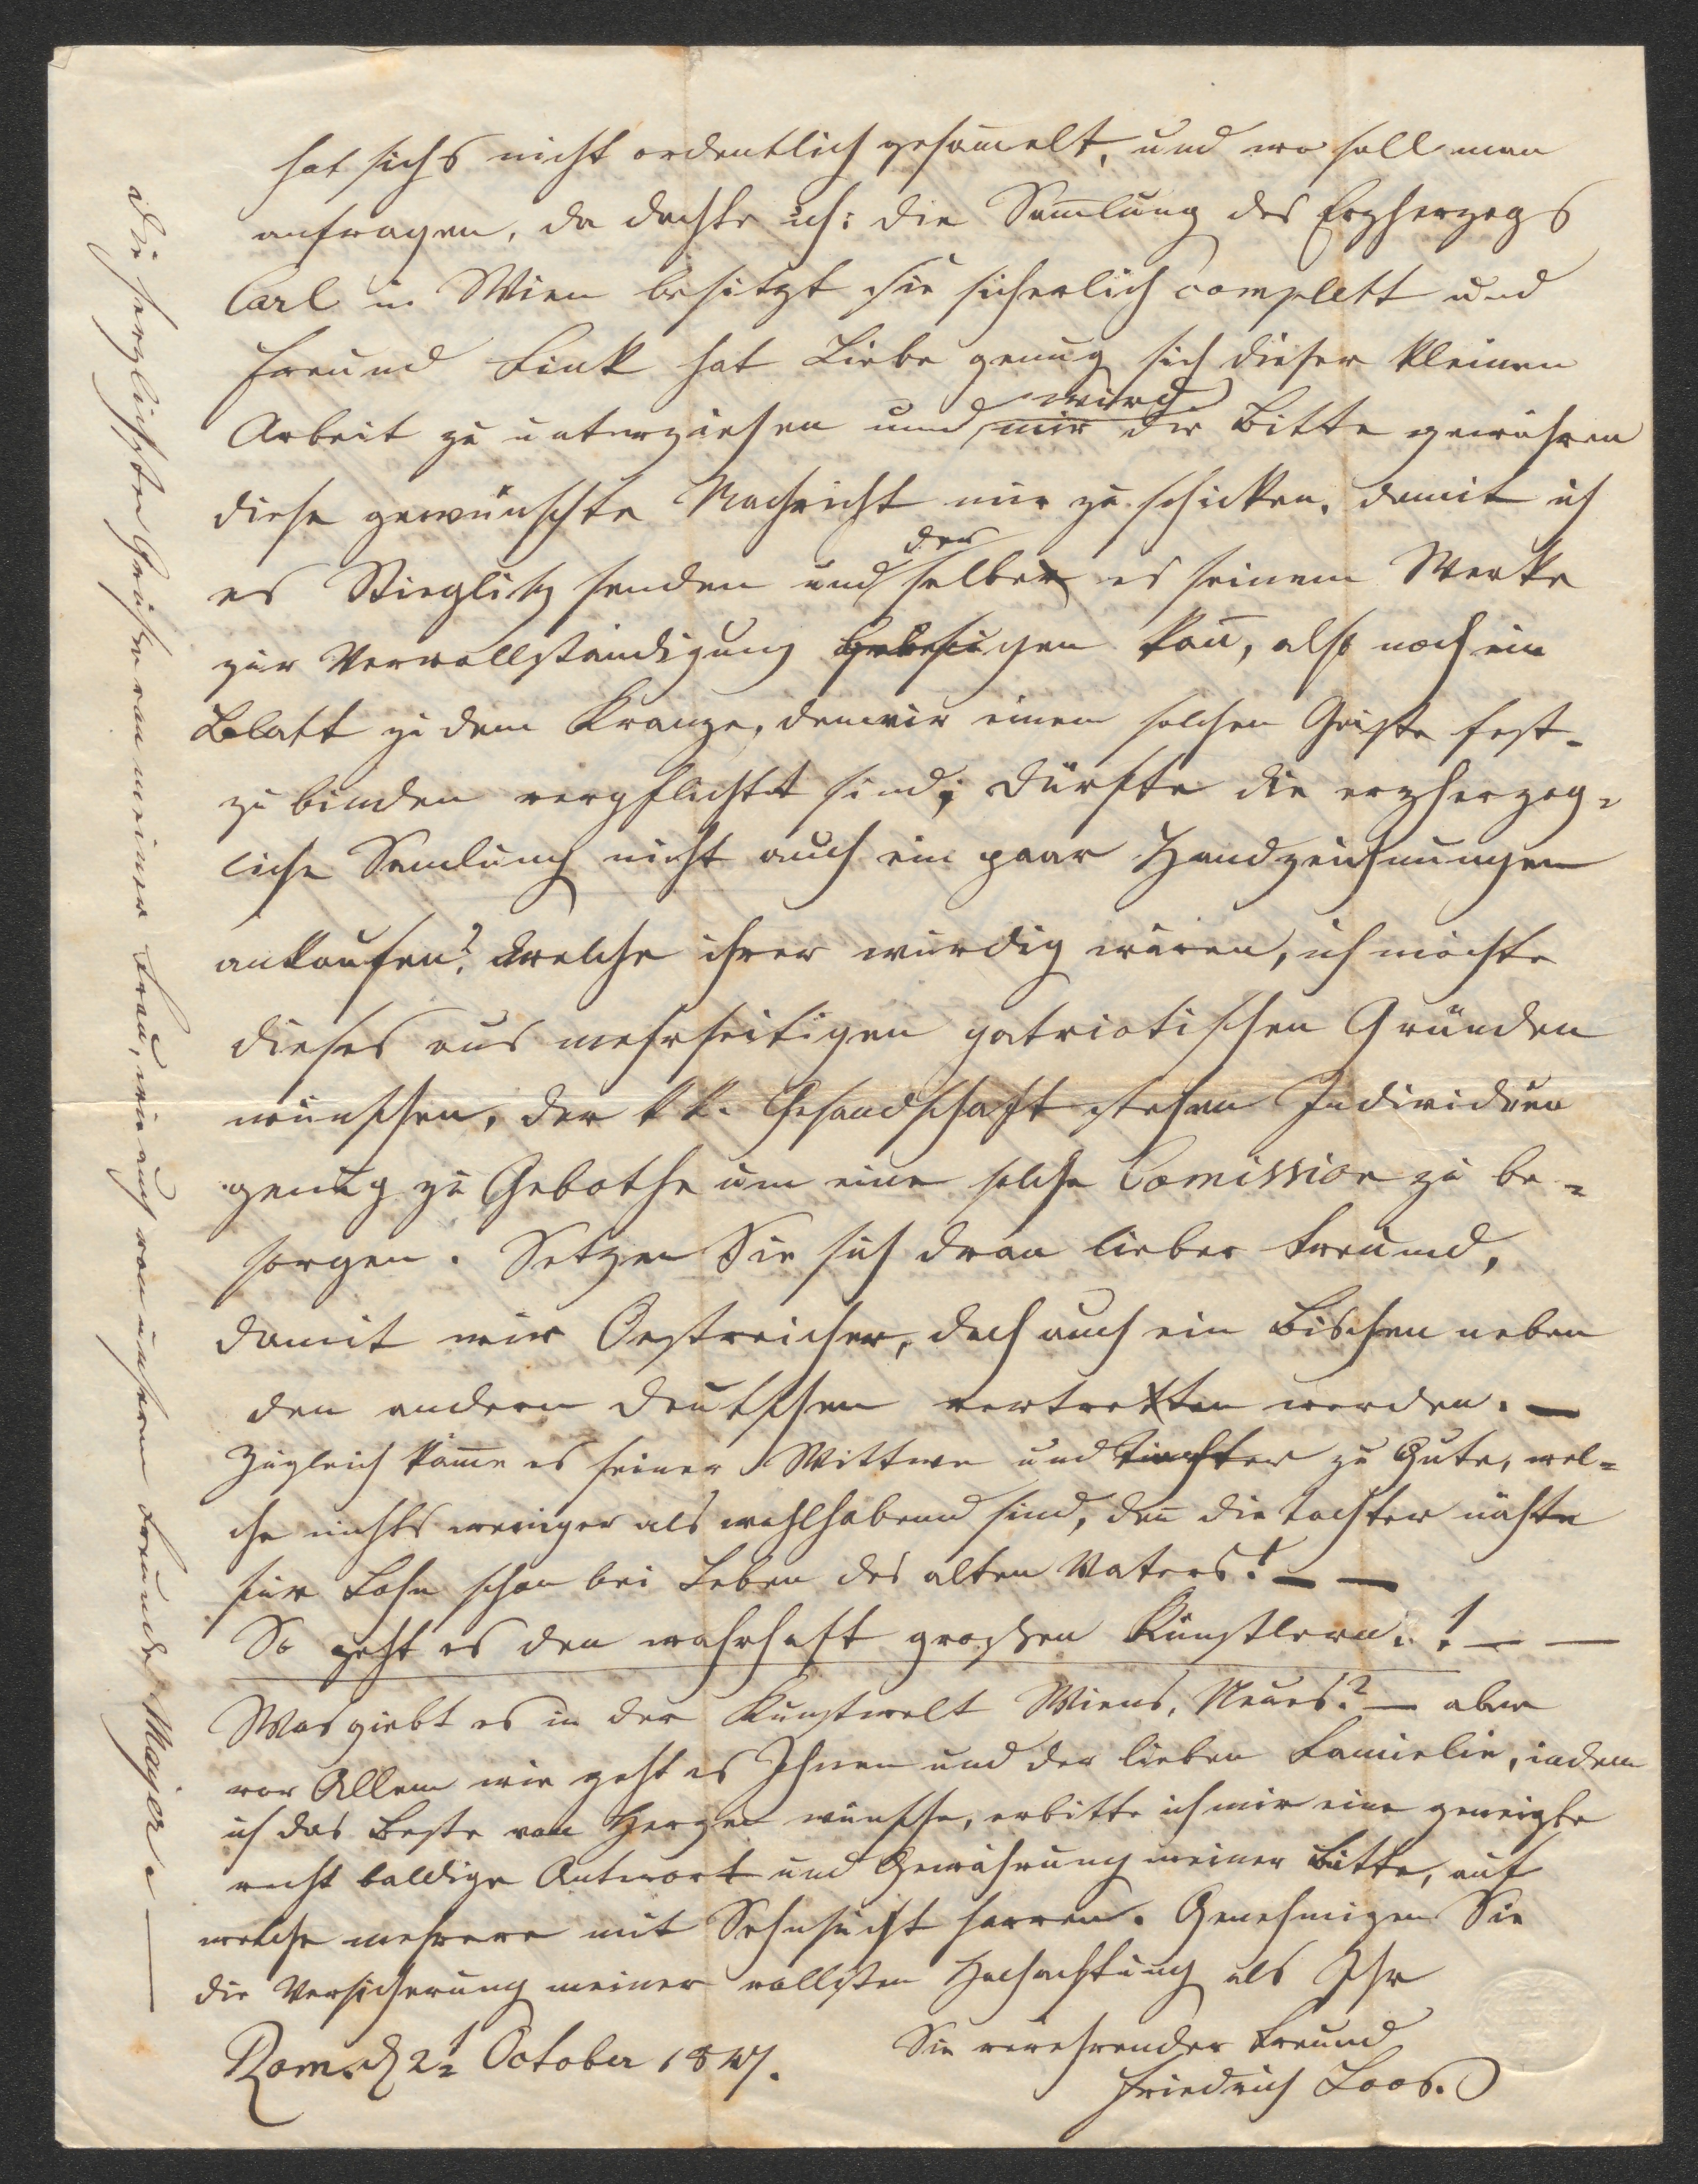 hat sichs nicht ordentlich gesam̄elt, und wo soll man
anfragen, da dachte ich: die Sam̄lung des Erzherzogs
Carl in Wien besitzt sie sicherlich complett und
Freund Fink hat Liebe genug sich dieser kleinen
Arbeit zu unterziehen und mir wird die Bitte gewähren
diese gewünschte Nachricht mir zu schicken, damit ich
es Stieglitz senden und derselbe es seinem Werke
zur Vervollständigung kan̄, also noch ein
Blatt zu dem Kranze, den wir einem solchen Geiste fest-
zu binden verpflichtet sind; dürfte die erzherzog-
liche Sam̄lung nicht auch ein paar Handzeichnungen
ankaufen? welche ihrer würdig wären, ich möchte
dieses aus mehrseitigen patriotischen Gründen
wünschen, der k k. Gesandschaft stehen Individuen
genug zu Gebothe um eine solche Com̄ission zu be-
sorgen. Setzen Sie sich dran lieber Freund,
damit wir Oestreicher, doch auch ein Bischen neben
den andern Deutschen vertretten werden. —
Zugleich käme es seiner Wittwe und Tochter zu Gute, wel-
che nichts weniger als wohlhabend sind, den̄ die Tochter nähte
für Lohn schon bei Leben des alten Vaters! — —
So geht es den wahrhaft grossen Künstlern.! — —
Was giebt es in der Kunstwelt Wiens, Neues? — aber
vor Allem wie geht es Ihnen und der lieben Familie, indem
ich das Beste von Herzen wünsche, erbitte ich mir eine geneigte
recht baldige Antwort und Gewährung meiner Bitte, auf
welche mehrere mit Sehnsucht harren. Genehmigen Sie
die Versicherung meiner vollsten Hochachtung als Ihr
Sie verehrender Freund
Rom d 21 October 1847.
Friedrich Loos.
Die herzlichsten Grüsse von meiner Frau, wie auch von unserem Freunde Majer. —